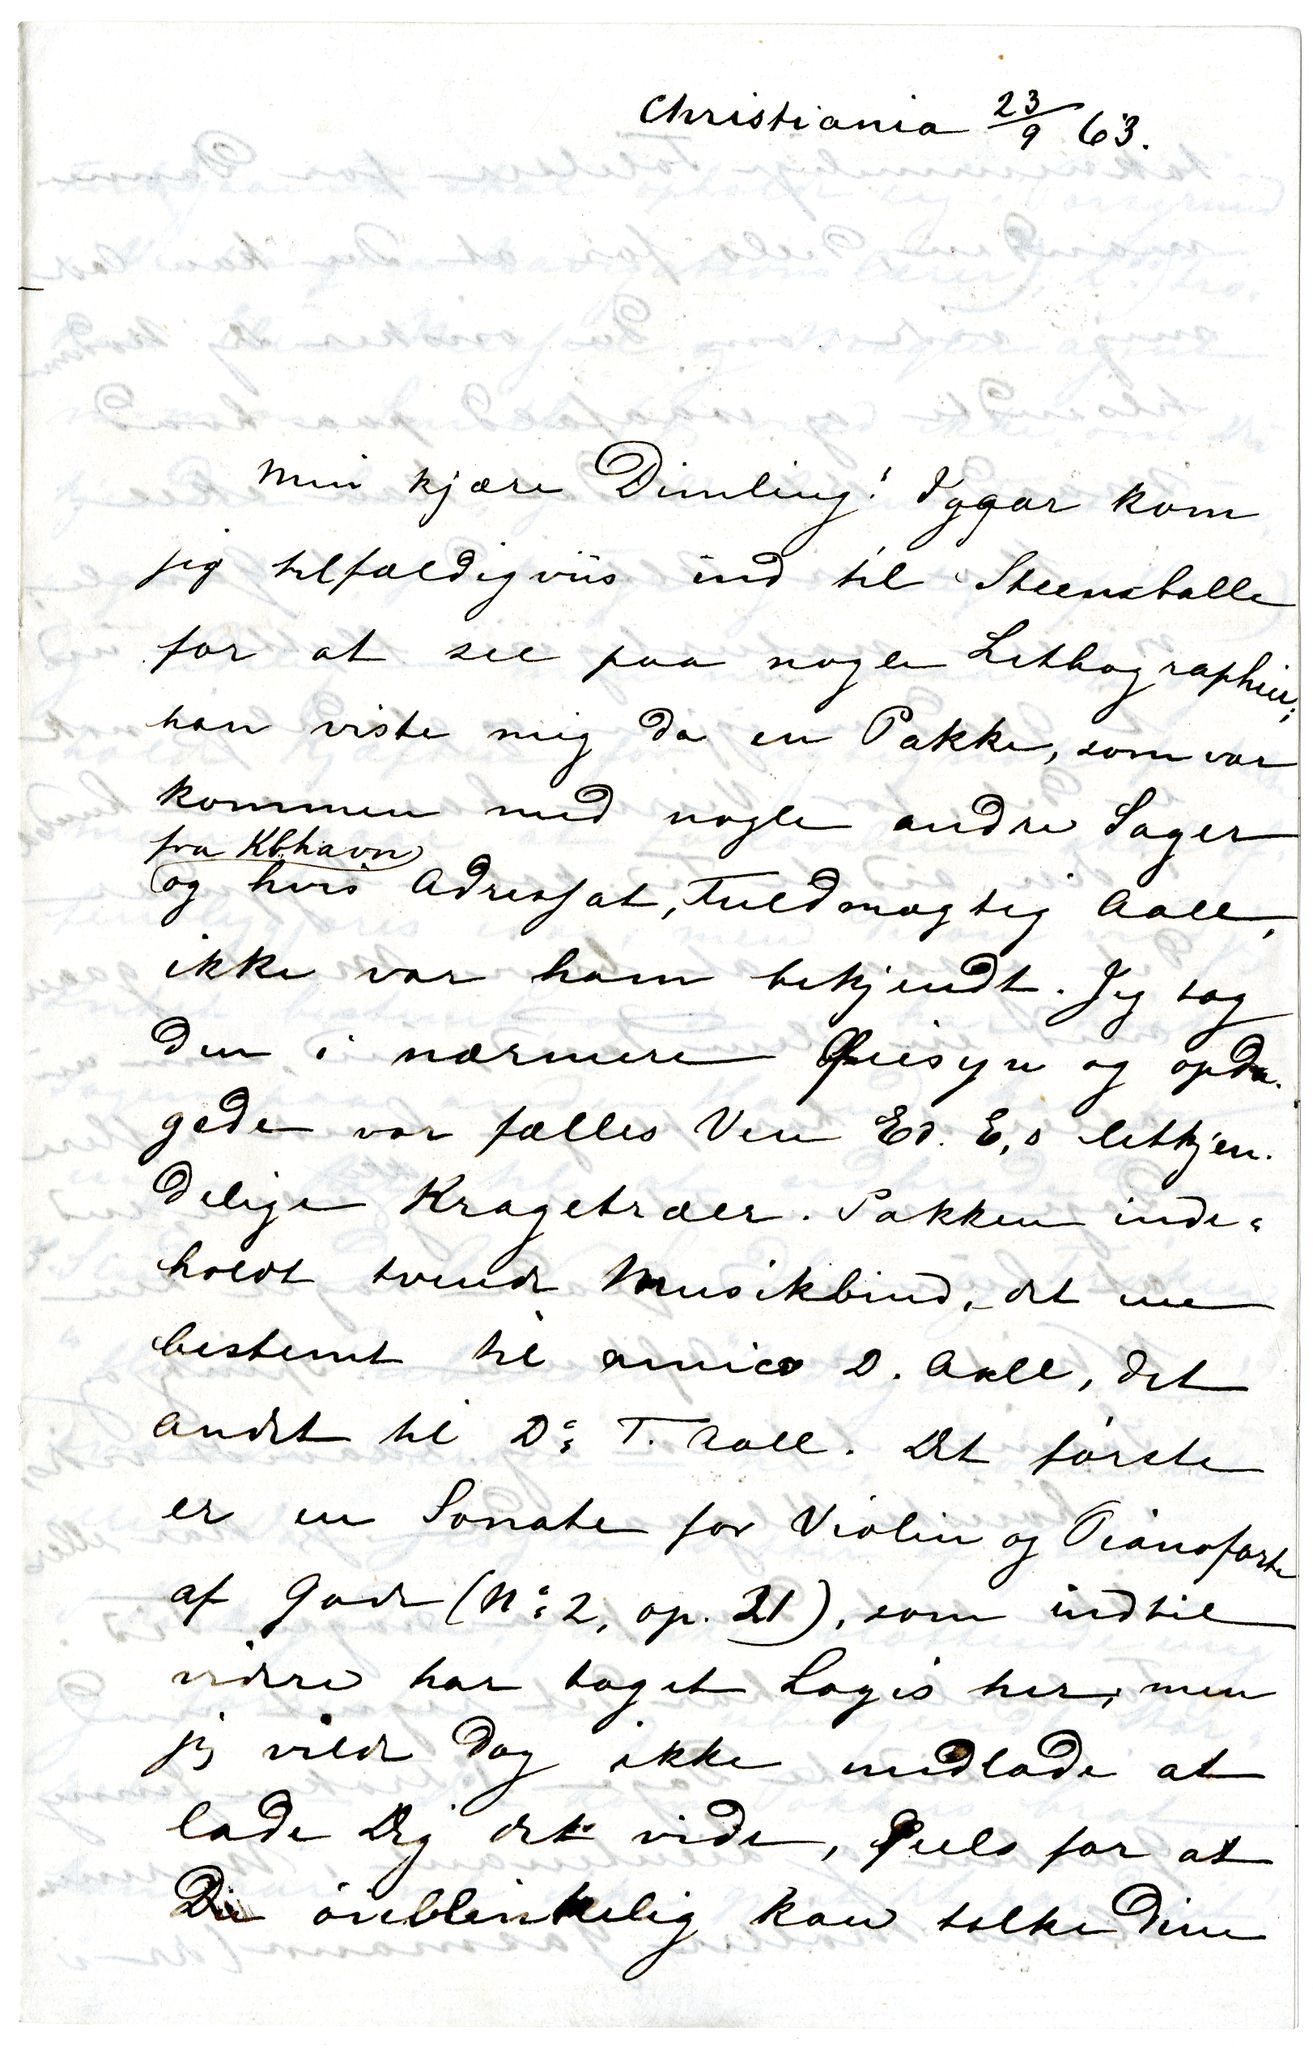 Christiania 23/9 63.
Min kjære Dimling! Iggar kom
jeg tilfældigviis ind til Steensballe
for at see paa nogle Lithographier;
han viste mig da en Pakke, som var
kommen med nogle andre Sager
fra Kbhavn
og hvis Adressat, Fuldmægtig Aall,
ikke var ham bekjendt. Jeg tog
den i nærmere Øiesyn og opda-
gede vor fælles Ven Ed. E,s letkjen-
delige Kragetræer. Pakken inde-
holdt tvende Musikbind, det ene
bestemt til amico D. Aall, det
andet til Do: T. Aall. Det første
er en Sonate for Violin og Pianoforte
af Gade (No: 2, op. 21), som indtil
videre har taget Logis her, men
jeg vilde dog ikke undlade at
lade Dig det vide, deels for at
Du öieblinkelig kan takke Din